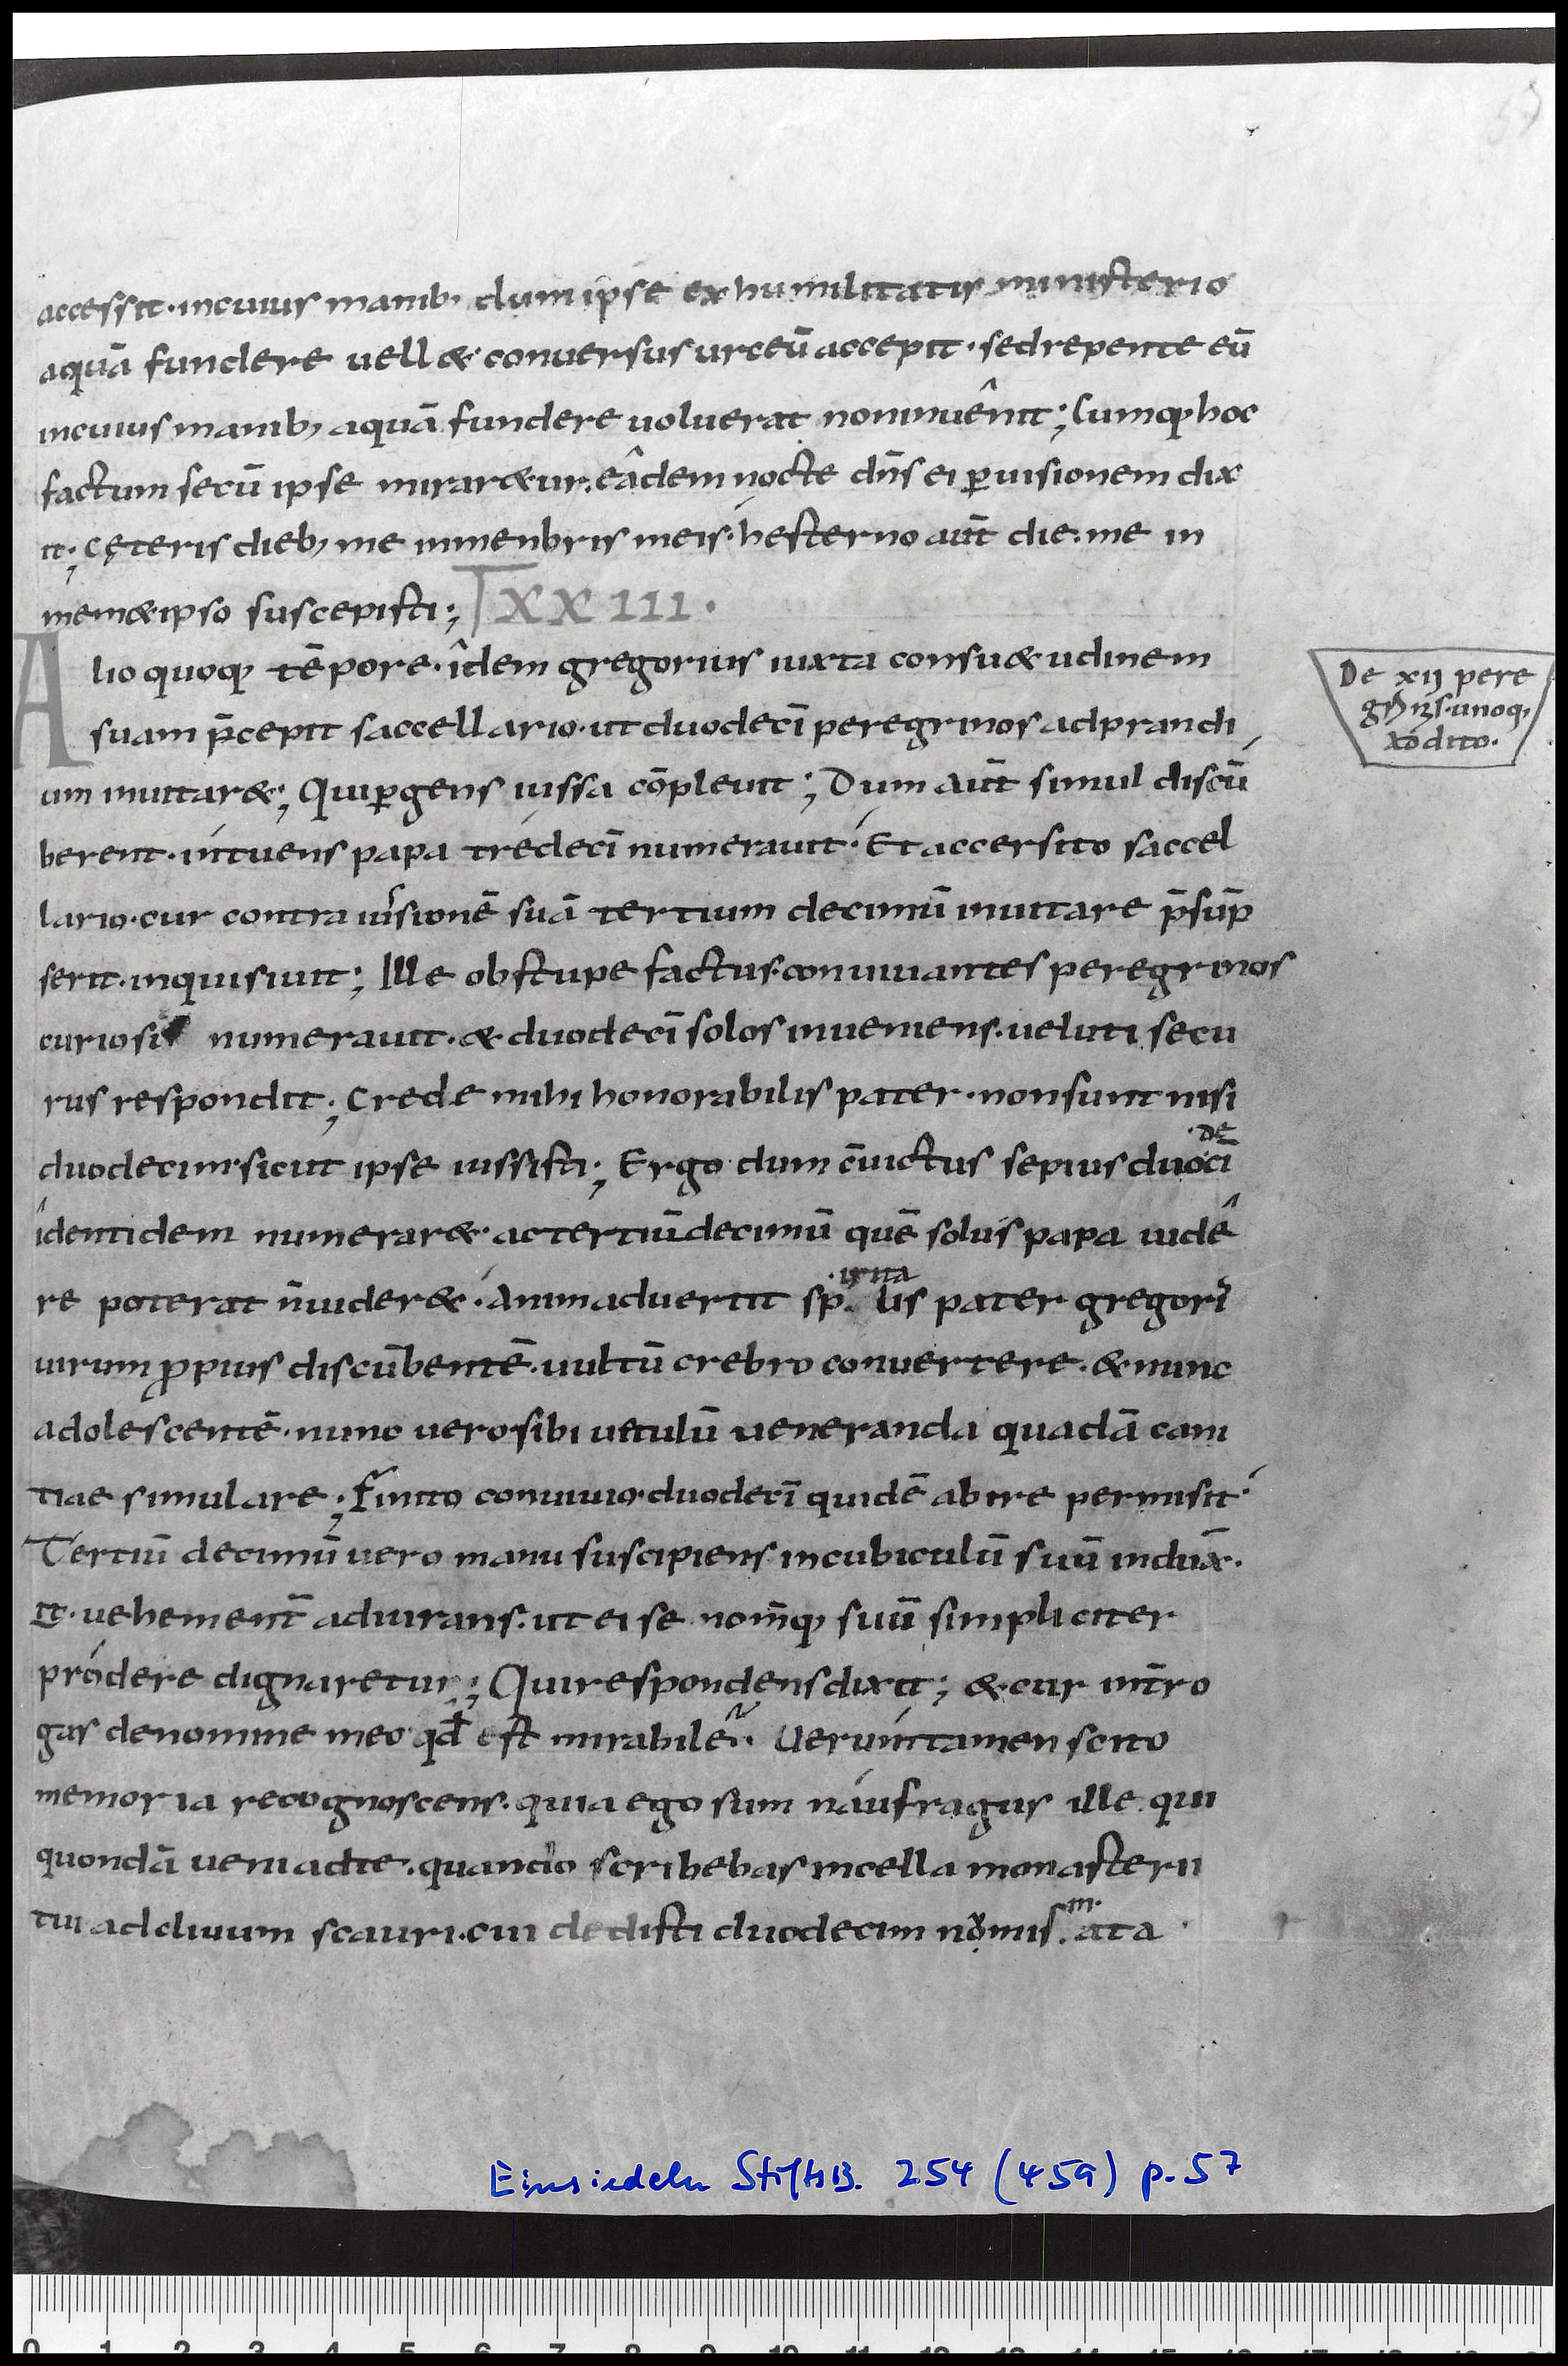 57
accessit. incuius manib; dum ipse ex humilitatis ministerio
aquā fundere uell&. conuersus urceū accepit. sed repente eū
incuius manib; aquā fundere uoluerat noninuênit; Cumq; hoc
factum secū ipse mirar&ur. eâdem nocte dn̄s ei ꝑuisionem dix
it; cęteris dieb; me inmenbris meis. hesterno aūt die. me in
mem&ipso suscepisti; XXIII.
Alio quoq; tēpore. îdem gregorius iuxta consu&udinem
suam p̄cepit saccellario. ut duodecī peregrinos adprandi
um inuitar&; Quiꝑgens iussa cōpleuit; Dum aūt simul discū
berent. intuens papa trédecī numerauit. Et accersito saccel
lario. cur contra iussionē suā tertium decimū inuitare p̄sūp
serit. inquisiuit; Ille obstupefactus. conuiuantes peregrinos
curiosi numerauit. & duodecī solos inueniens. ueluti secu
rus respondit; Crede mihi honorabilis pater. nonsunt nisi
duodecim sicut ipse iussisti; Ergo dum c̄uictus sepius duo.de.cī
îdentidem numerar&. ac tertiū decimū quē solus papa uidê
re poterat n̄uider&. Animaduertit sp.irita.lis pater gregori᾿
uirum ꝓpius discūbentē. uultū crebro conuertere. & nunc
adolescentē. nunc uerosibi uetulū ueneranda quadā cani
tiae simulare; Finito conuiuio. duodecī quidē abire permisit.
Tertiū decimū uero manu suscipiens incubiculū suū indux.
it. uehement̄ adiurans. ut ei se nom̄q; suū simpliciter
pródere dignaretur; Qui respondens dixit; & cur int̄ro
gas denomine meo qd̄ est mirabile. Uerúntamen scito
memoria recognoscens. quia ego sum náufragus ille. qui
quondā ueni adte. quando scribebas incella monasterii
tui adcliuum scauri. cui dedisti duodecim nomis.m.ata
De xij pere
grinis. unoq;
xódito.
Einsiedeln StiftsB. 254 (459) p. 57
0 1 2 3 4 5 6 7 8 9 10 11 12 13 14 15 16 17 18